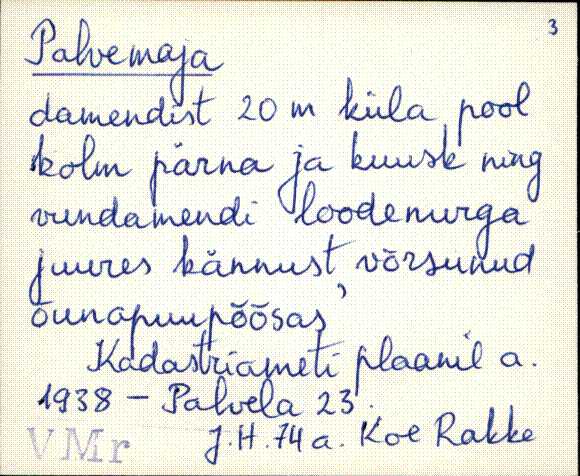 3
Palvemaja
damendist 20 m küla pool
kolm pärna ja kuusk ning
vundamendi loodenurga
juures kännust võrsunud
õunapuupõõsas,
Kadastriameti plaanil a.
1938 – Palvela 23.
VMr J.H. 74 a. Koe Rakke